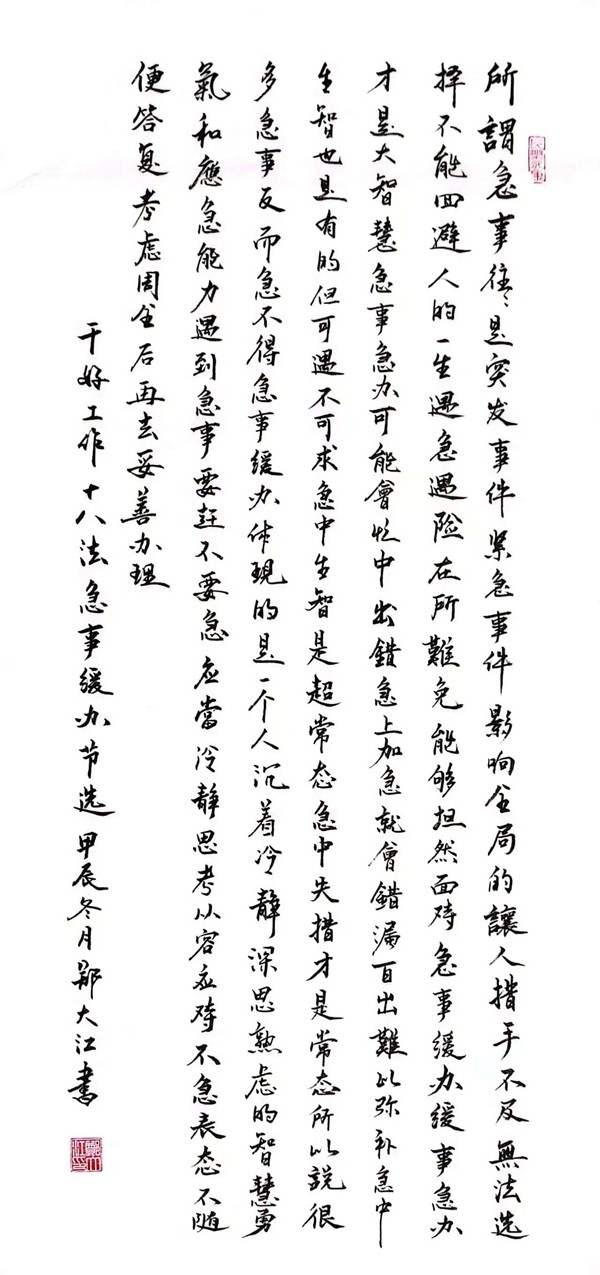 所謂急事往々是突发事件紧急事件影响全局的讓人措手不及無法选
择不能回避人的一生遇急遇险在所難免能够坦然面对急事缓办缓事急办
才是大智慧急事急办可能會忙中出錯急上加急就會錯漏百出難以弥补急中
生智也是有的但可遇不可求急中生智是超常态急中失措才是常态所以説很
多急事反而急不得急事缓办体現的是一个人沉着冷静深思熟虑的智慧勇
氣和應急能力遇到急事要赶不要急应當冷静思考从容应对不急表态不随
便答复考虑周全后再去妥善办理
干好工作十八法急事缓办节选甲辰冬月鄭大江書